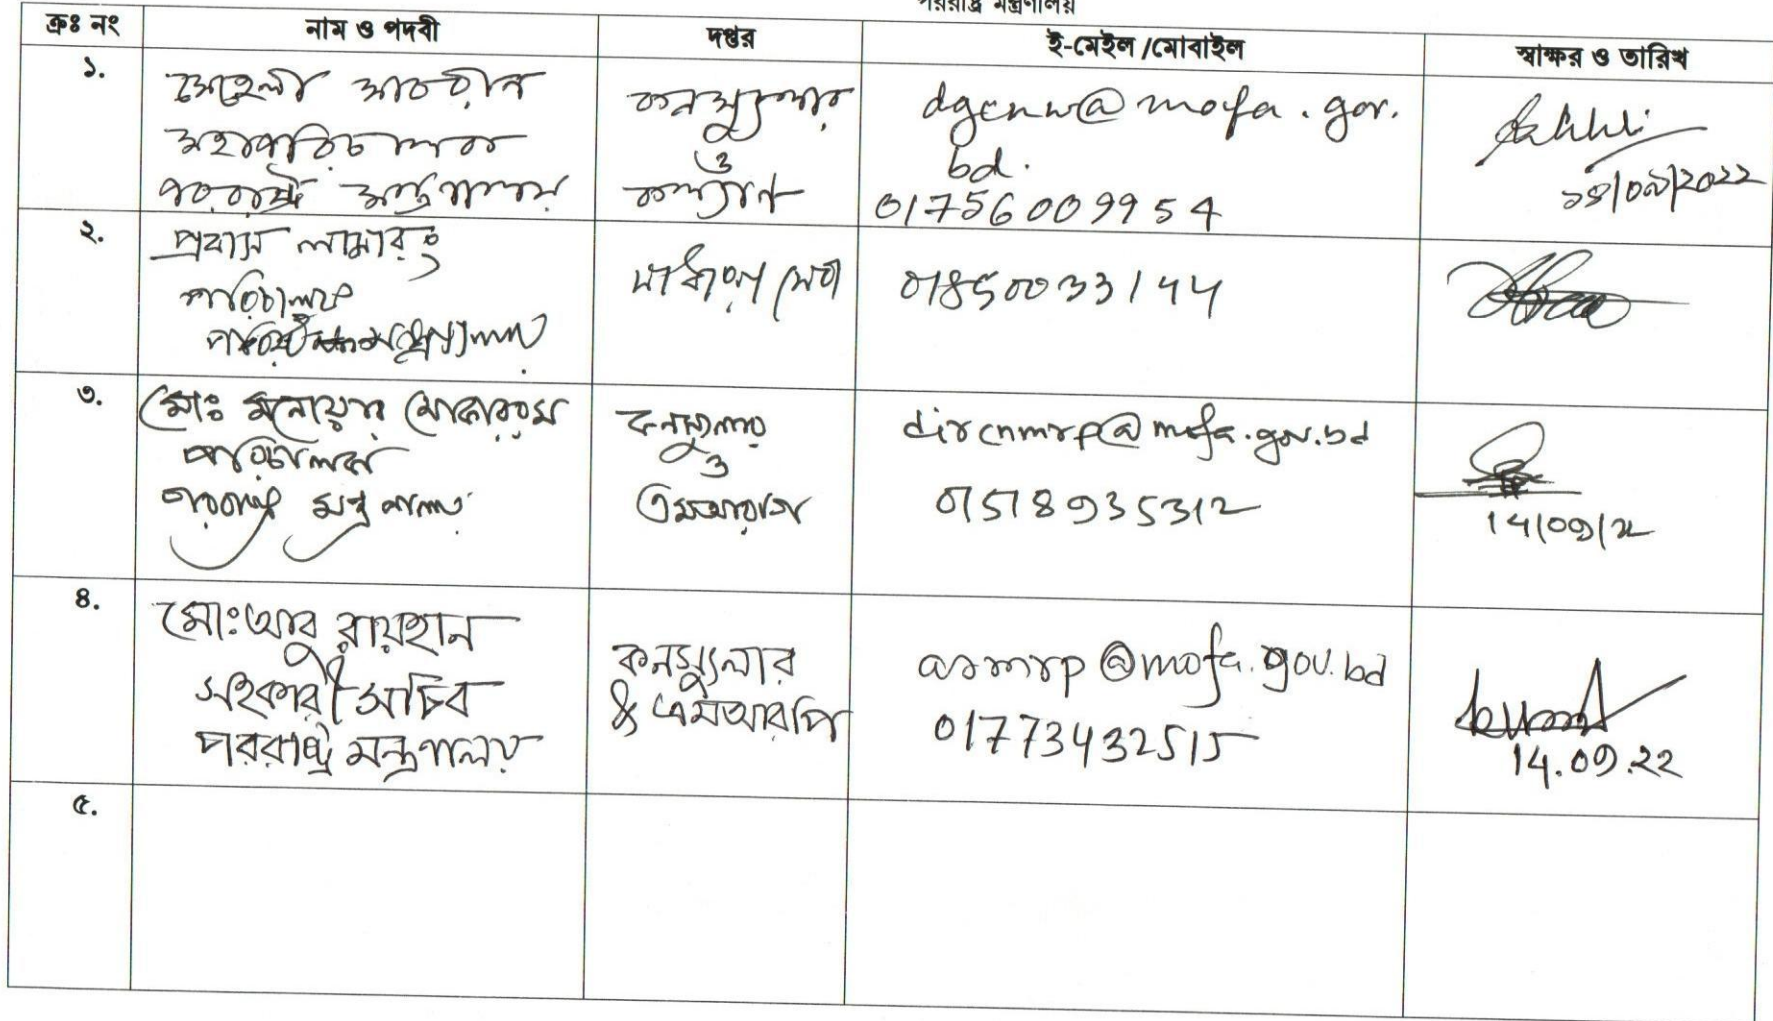 পররাষ্ট্র মন্ত্রণালয়
ক্রঃ নং নাম ও পদবী দপ্তর ই-মেইল /মোবাইল স্বাক্ষর ও তারিখ
১.
সেহেলী সাবরীন
মহাপরিচালক
পররাষ্ট্র মন্ত্রণালয়
কনস্যুলার
ও
কল্যাণ
dgcnw@mofa.gov.
bd.
01756009954
১৪/০৯/2022
২.
প্রবাস লামারং
পরিচালক
01850033144
৩.
মোঃ মনোয়ার মোকাররম
পরিচালক
পররাষ্ট্র মন্ত্রণালয়
কনস্যুলার
ও
এমআরপি
dircnmrp@mofa.gov.bd
01518935312
14/09/22
৪.
মোঃ আবু রায়হান
সহকারী সচিব
পররাষ্ট্র মন্ত্রণালয়
কনস্যুলার
& এমআরপি
asmrp@mofa.gov.bd
01773432515
14.09.22
৫.